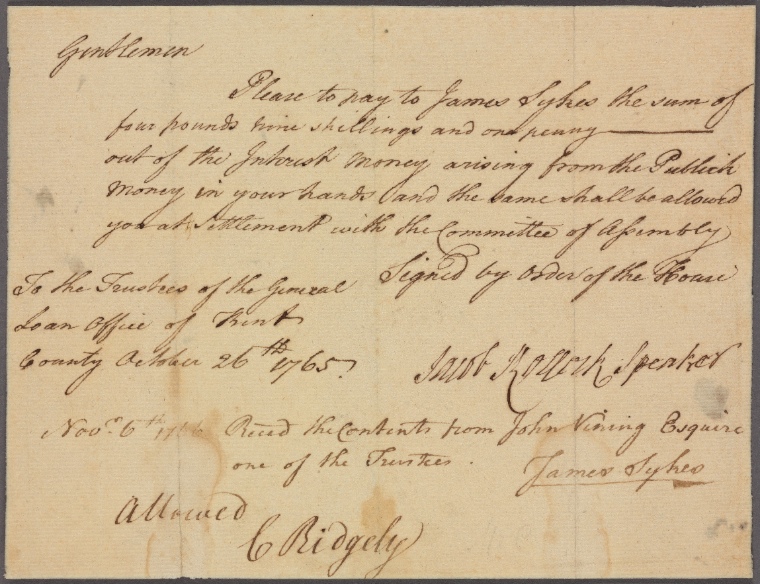 Gentlemen
Please to pay to James Sykes the sum of
four pounds nine shillings and one penny
out of the Interest money arising from the Publick
money in your hands and the same shall be allowed
you at Settlement with the Committee of Assembly
Signed by Order of the House
To the Trustees of the General
Loan Office of Kent
County October 26th 1765.
Jacob Kollock Speaker
Novr. 6th 1766 Reced the Contents from John Vining Esquire
one of the Trustees.
James Sykes
Allowed
C Ridgely